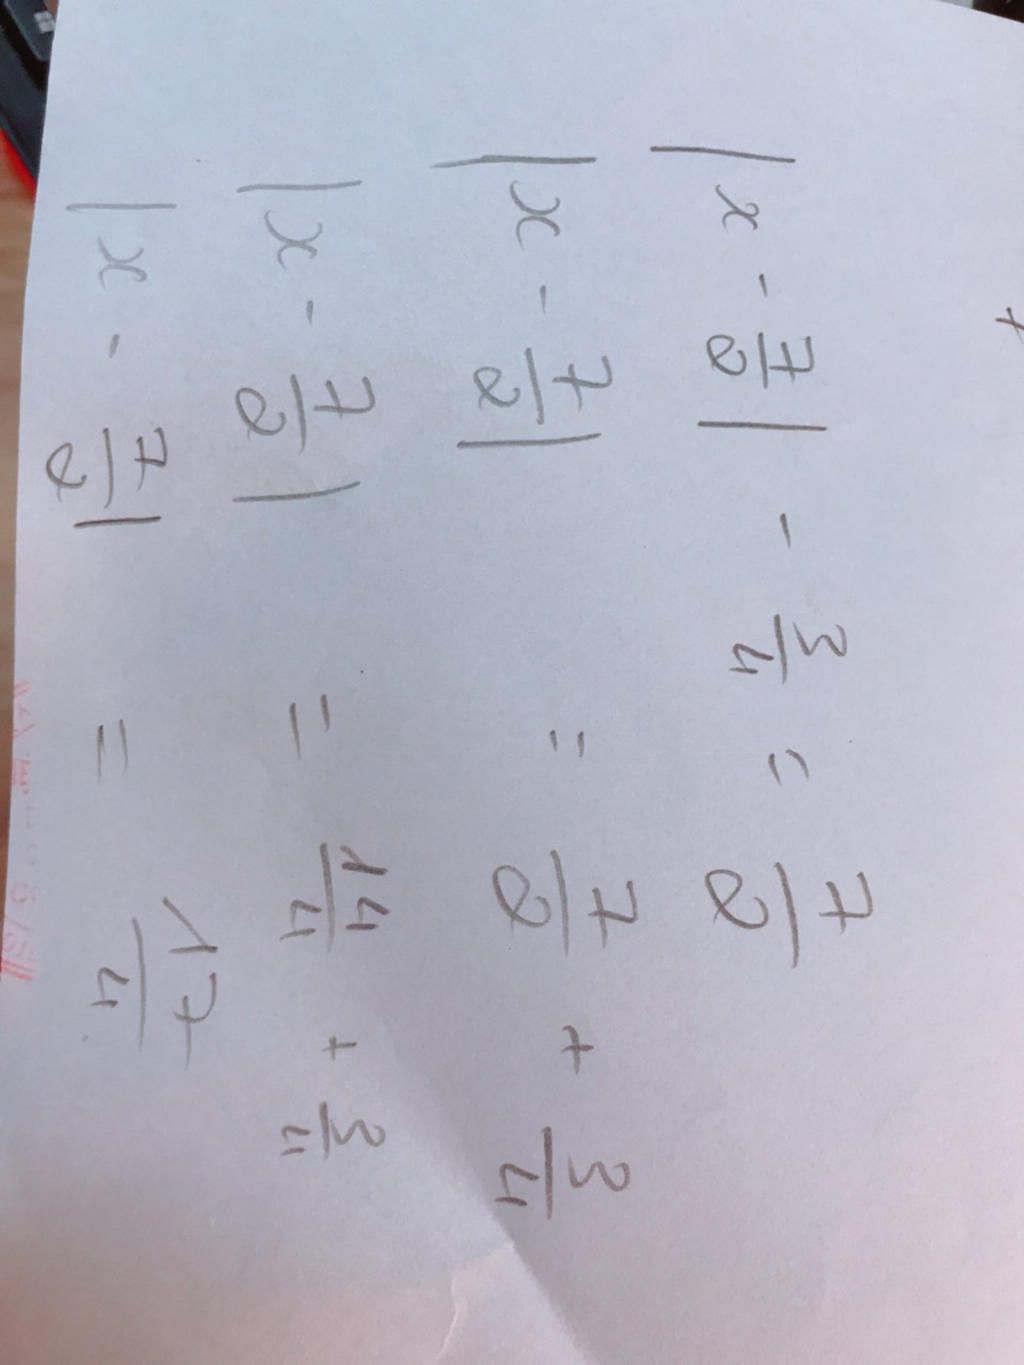 |x - 7/2| - 3/4 = 7/2
|x - 7/2| = 7/2 + 3/4
|x - 7/2| = 14/4 + 3/4
|x - 7/2| = 17/4